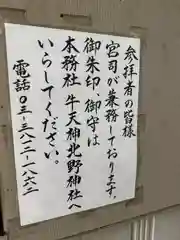 参拝者の皆様
宮司が兼務しております。
御朱印、御守は
本務社 牛天神北野神社へ
いらしてください。
電話〇三-三八一二-一八六二